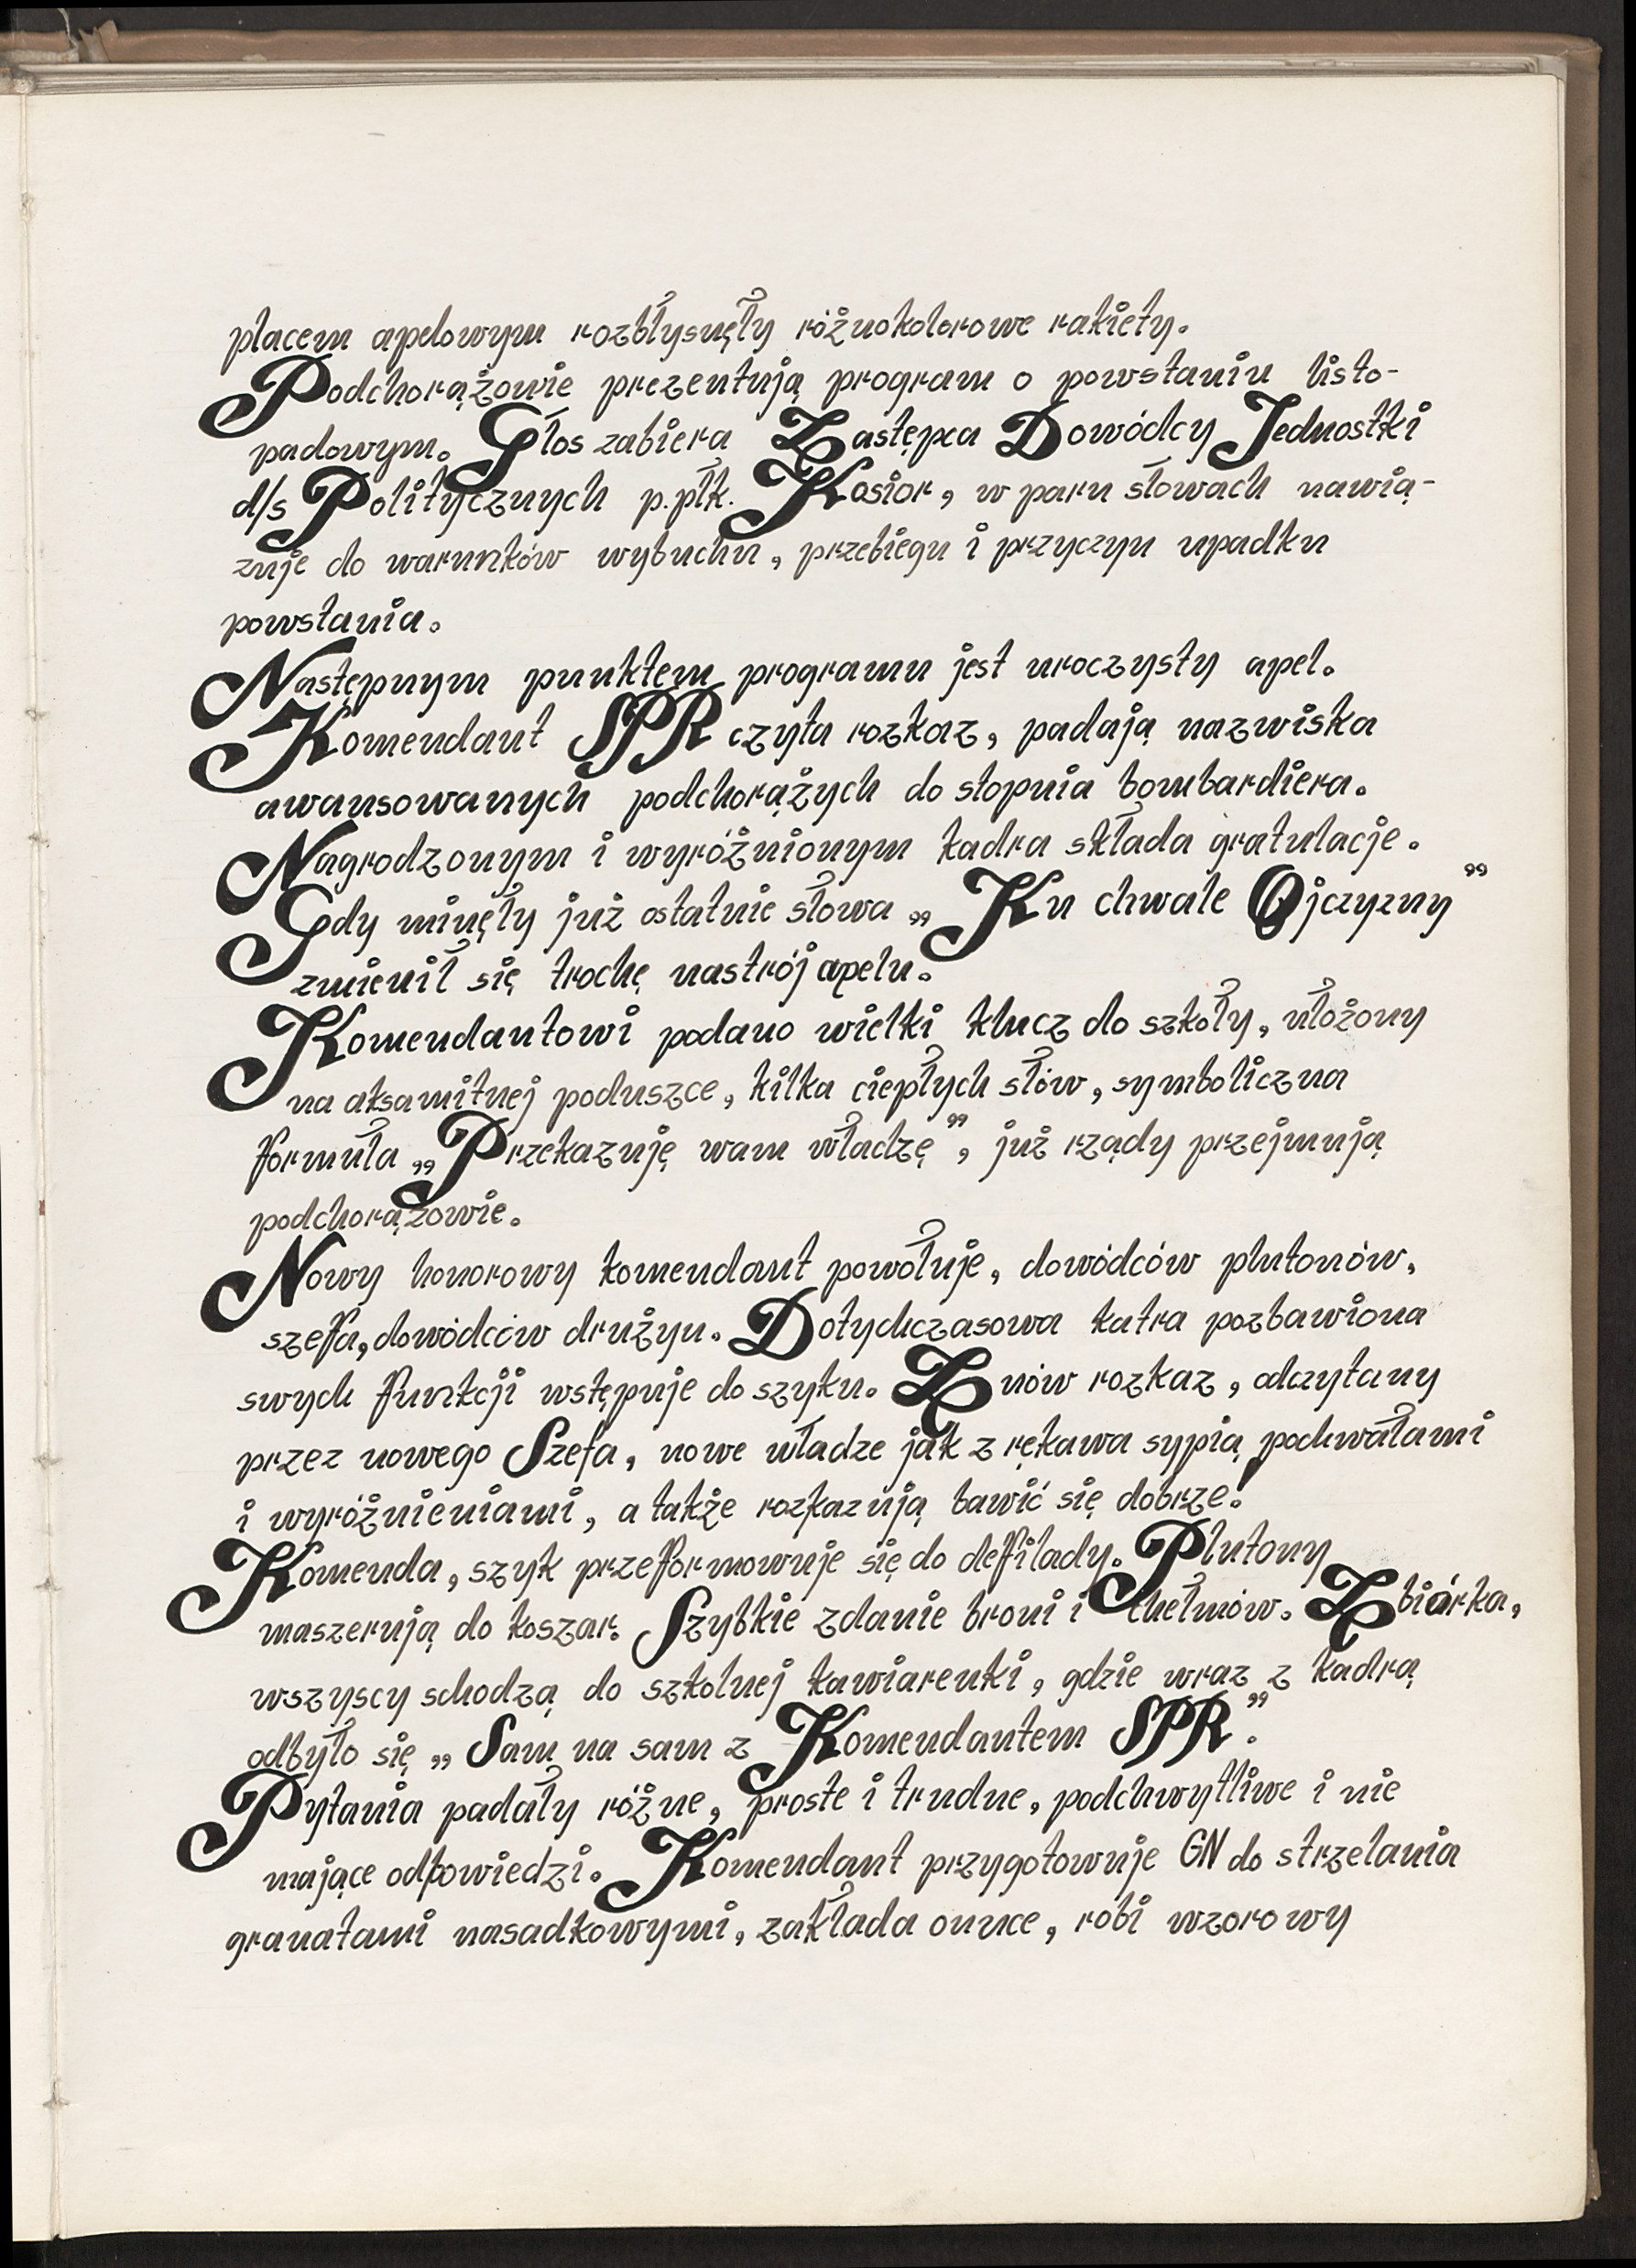 placem apelowym rozbłysnęły różnokolorowe rakiety.
Podchorążowie prezentują program o powstaniu listo-
padowym. Głos zabiera Zastępca Dowódcy Jednostki
d/s Politycznych p.płk. Kosior, w paru słowach nawią-
zuje do warunków wybuchu, przebiegu i przyczyn upadku
powstania.
Następnym punktem programu jest uroczysty apel.
Komendant SPR czyta rozkaz, padają nazwiska
awansowanych podchorążych do stopnia bombardiera.
Nagrodzonym i wyróżnionym kadra składa gratulacje.
Gdy minęły już ostatnie słowa „Ku chwale Ojczyzny”
zmienił się trochę nastrój apelu.
Komendantowi podano wielki klucz do szkoły, ułożony
na aksamitnej poduszce, kilka ciepłych słów, symboliczna
formuła „Przekazuję wam władzę”, już rządy przejmują
podchorążowie.
Nowy honorowy komendant powołuje, dowódców plutonów,
szefa, dowódców drużyn. Dotychczasowa katra pozbawiona
swych funkcji wstępuje do szyku. Znów rozkaz, odczytany
przez nowego Szefa, nowe władze jak z rękawa sypią pochwałami
i wyróżnieniami, a także rozkazują bawić się dobrze.
Komenda, szyk przeformowuje się do defilady. Plutony
maszerują do koszar. Szybkie zdanie broni i chełmów. Zbiórka,
wszyscy schodzą do szkolnej kawiarenki, gdzie wraz z kadrą
odbyło się „Sam na sam z Komendantem SPR”.
Pytania padały różne, proste i trudne, podchwytliwe i nie
mające odpowiedzi. Komendant przygotowuje GN do strzelania
granatami nasadkowymi, zakłada onuce, robi wzorowy